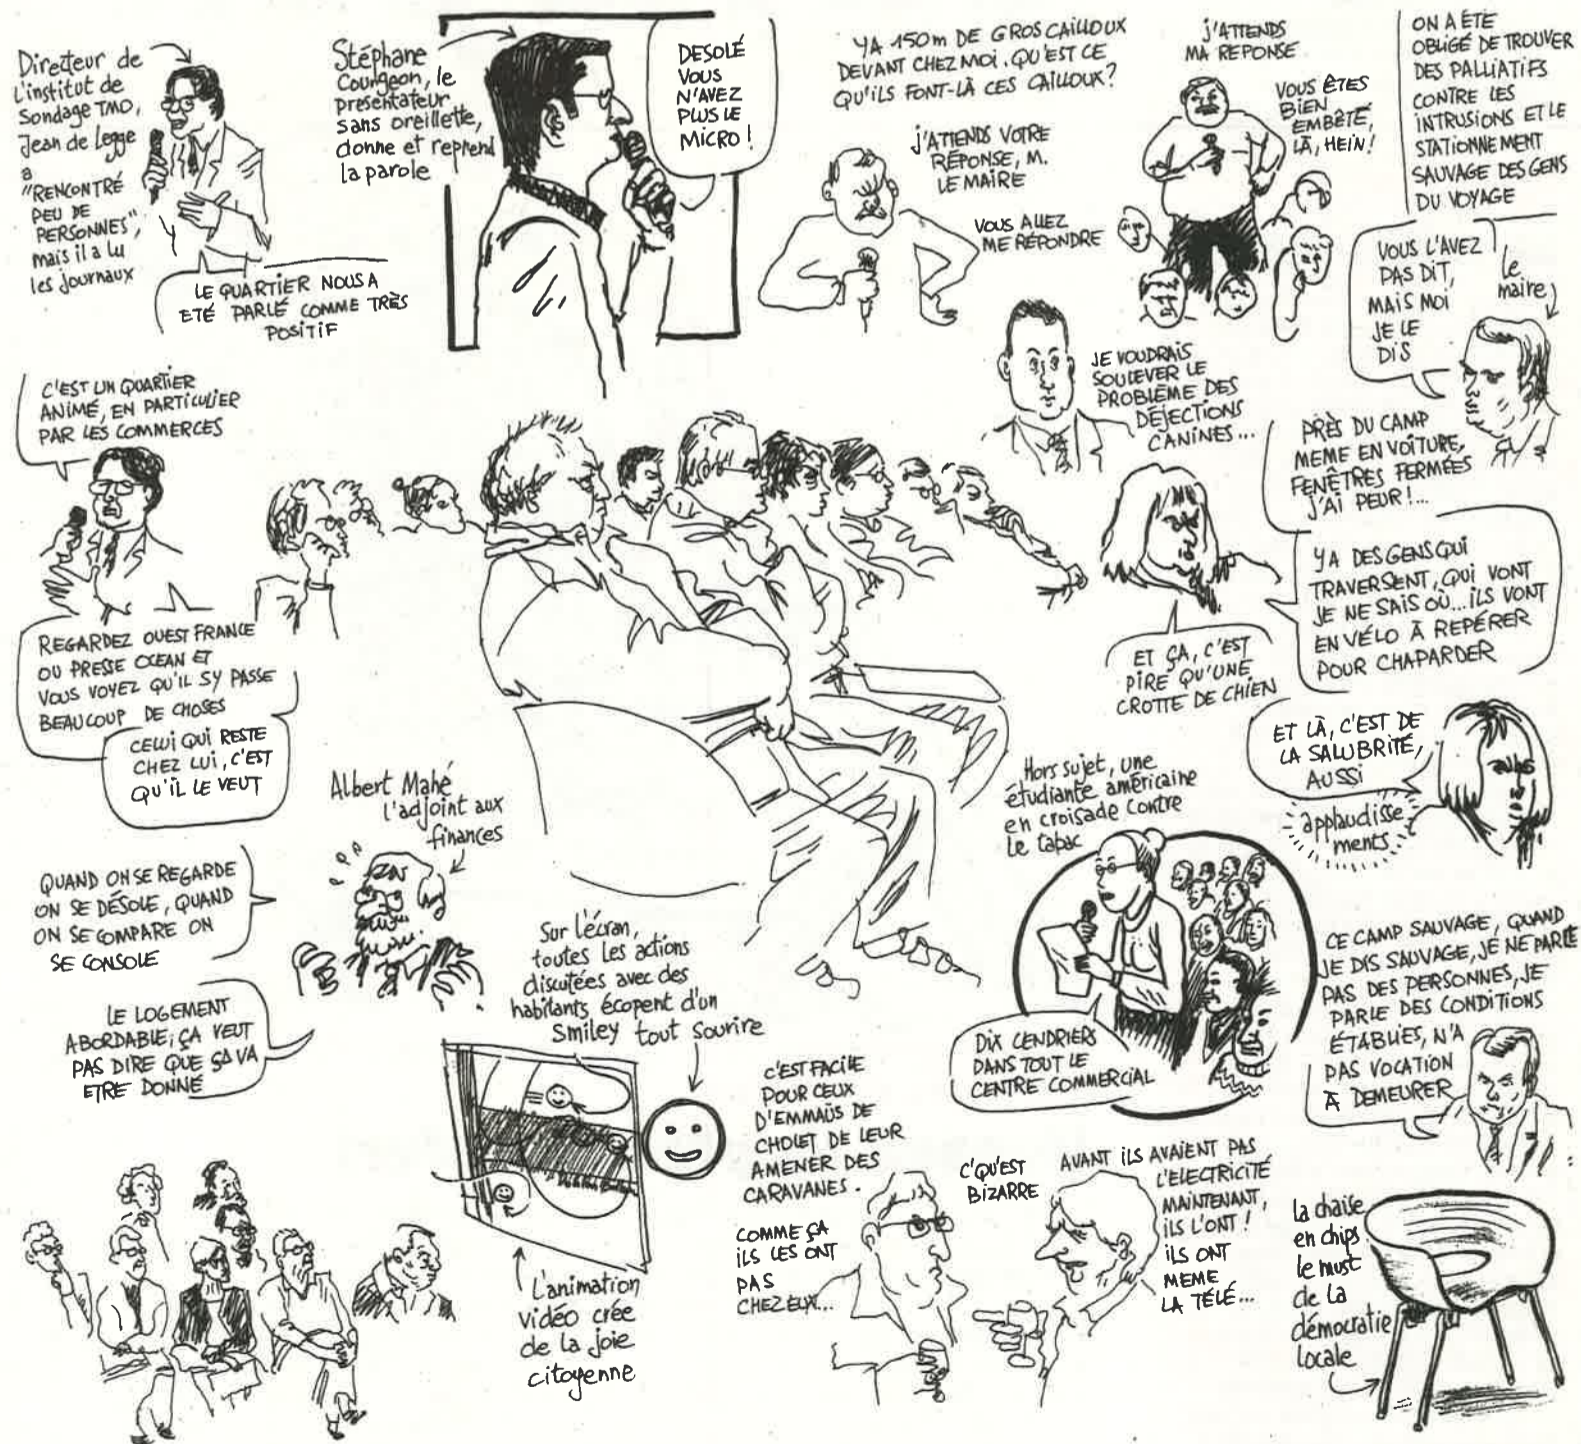 Directeur de
l'institut de
Sondage TMO,
Jean de Legge
a
"RENCONTRÉ
PEU DE
PERSONNES",
mais il a lu
les journaux
LE QUARTIER NOUS A
ETÉ PARLÉ COMME TRÈS
POSITIF
Stéphane
Courgeon, le
présentateur
sans oreillette,
donne et reprend
la parole
DESOLÉ
VOUS
N'AVEZ
PLUS LE
MICRO!
YA 150m DE GROS CAILLOUX
DEVANT CHEZ MOI. QU'EST CE
QU'ILS FONT-LÀ CES CAILLOUX?
J'ATTENDS VOTRE
RÉPONSE, M.
LE MAIRE
VOUS ALLEZ
ME RÉPONDRE
J'ATTENDS
MA REPONSE
VOUS ÊTES
BIEN
EMBÊTÉ,
LÀ, HEIN!
ON A ÉTÉ
OBLIGÉ DE TROUVER
DES PALLIATIFS
CONTRE LES
INTRUSIONS ET LE
STATIONNEMENT
SAUVAGE DES GENS
DU VOYAGE
VOUS L'AVEZ
PAS DIT,
MAIS MOI
JE LE
DIS
le
maire
C'EST UN QUARTIER
ANIMÉ, EN PARTICULIER
PAR LES COMMERCES
REGARDEZ OUEST FRANCE
OU PRESSE OCEAN ET
VOUS VOYEZ QU'IL SY PASSE
BEAUCOUP DE CHOSES
CELUI QUI RESTE
CHEZ LUI, C'EST
QU'IL LE VEUT
JE VOUDRAIS
SOULEVER LE
PROBLÈME DES
DÉJECTIONS
CANINES...
PRÈS DU CAMP
MEME EN VOITURE,
FENÊTRES FERMÉES
J'AI PEUR!...
YA DES GENS QUI
TRAVERSENT, QUI VONT
JE NE SAIS OÙ... ILS VONT
EN VÉLO À REPÉRER
POUR CHAPARDER
ET ÇA, C'EST
PIRE QU'UNE
CROTTE DE CHIEN
ET LÀ, C'EST DE
LA SALUBRITÉ,
AUSSI
applaudisse
ments
Albert Mahé
l'adjoint aux
finances
QUAND ON SE REGARDE
ON SE DÉSOLE, QUAND
ON SE COMPARE ON
SE CONSOLE
LE LOGEMENT
ABORDABLE, ÇA VEUT
PAS DIRE QUE ÇA VA
ETRE DONNÉ
Sur l'écran,
toutes les actions
discutées avec des
habitants écopent d'un
Smiley tout sourire
L'animation
vidéo crée
de la joie
citoyenne
Hors sujet, une
étudiante américaine
en croisade contre
le tabac
DIX CENDRIERS
DANS TOUT LE
CENTRE COMMERCIAL
CE CAMP SAUVAGE, QUAND
JE DIS SAUVAGE, JE NE PARLE
PAS DES PERSONNES, JE
PARLE DES CONDITIONS
ÉTABLIES, N'A
PAS VOCATION
À DEMEURER
C'EST FACILE
POUR CEUX
D'EMMAÜS DE
CHOLET DE LEUR
AMENER DES
CARAVANES.
COMME ÇA
ILS LES ONT
PAS
CHEZ EUX...
C'QU'EST
BIZARRE
AVANT ILS AVAIENT PAS
L'ELECTRICITÉ
MAINTENANT,
ILS L'ONT!
ILS ONT
MEME
LA TÉLÉ...
la chaise
en chips
le must
de la
démocratie
locale